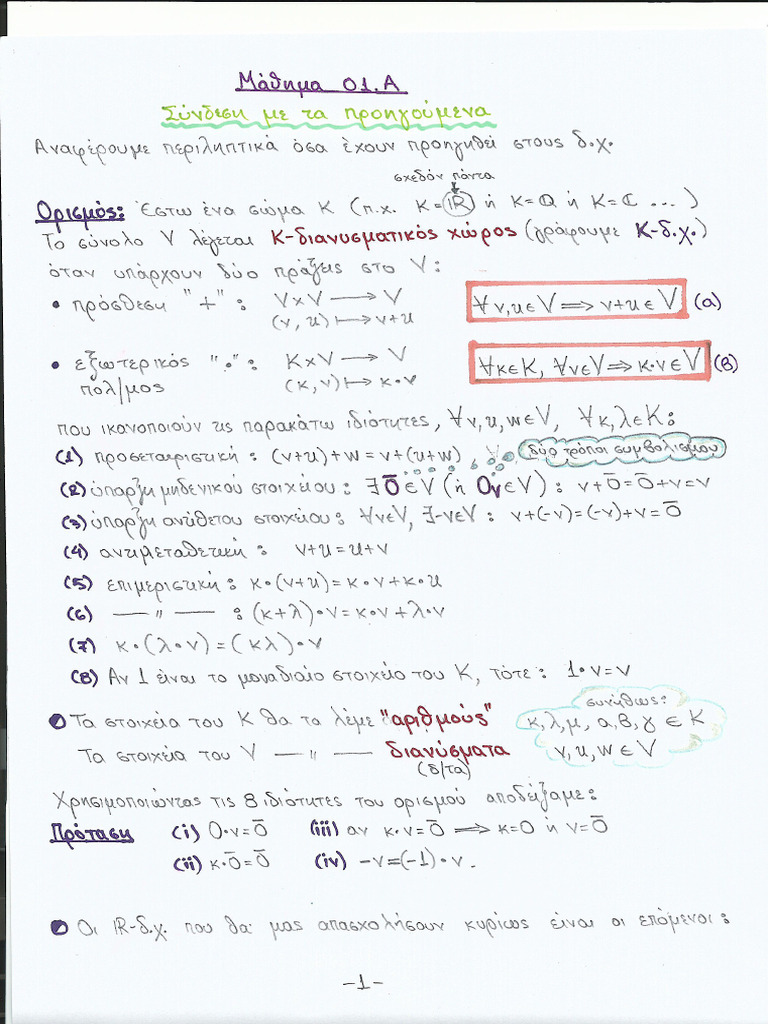 Μάθημα 01.Α
Σύνδεση με τα προηγούμενα
Αναφέρουμε περιληπτικά όσα έχουν προηγηθεί στους δ.χ.
σχεδόν πάντα
Ορισμός: Έστω ένα σώμα Κ (π.χ. Κ=ℝ ή Κ=ℚ ή Κ=ℂ ...)
Το σύνολο V λέγεται Κ-διανυσματικός χώρος (γράφουμε Κ-δ.χ.)
όταν υπάρχουν δύο πράξεις στο V:
• πρόσθεση "+": V×V ⟶ V
(v,u) ⟼ v+u
∀v,u∈V ⟹ v+u∈V (α)
• εξωτερικός "•": Κ×V ⟶ V
πολ/μος (κ,v) ⟼ κ·v
∀κ∈Κ, ∀v∈V ⟹ κ·v∈V (β)
που ικανοποιούν τις παρακάτω ιδιότητες, ∀v,u,w∈V, ∀κ,λ∈Κ:
(1) προσεταιριστική: (v+u)+w=v+(u+w),
δύο τρόποι συμβολισμού
(2) ύπαρξη μηδενικού στοιχείου: ∃ Ō∈V (ή O_V∈V): v+Ō=Ō+v=v
(3) ύπαρξη αντίθετου στοιχείου: ∀v∈V, ∃-v∈V: v+(-v)=(-v)+v=Ō
(4) αντιμεταθετική: v+u=u+v
(5) επιμεριστική: κ·(v+u)=κ·v+κ·u
(6) —— " —— : (κ+λ)·v=κ·v+λ·v
(7) κ·(λ·v)=(κλ)·v
(8) Αν 1 είναι το μοναδιαίο στοιχείο του Κ, τότε: 1·v=v
συνήθως:
Τα στοιχεία του Κ θα τα λέμε "αριθμούς" κ,λ,μ, α,β,γ ∈ Κ
Τα στοιχεία του V —— " —— διανύσματα v,u,w∈V
(δ/τα)
Χρησιμοποιώντας τις 8 ιδιότητες του ορισμού αποδείξαμε:
Πρόταση (i) 0·v=Ō (iii) αν κ·v=Ō ⟹ κ=0 ή v=Ō
(ii) κ·Ō=Ō (iv) -v=(-1)·v.
Οι ℝ-δ.χ. που θα μας απασχολήσουν κυρίως είναι οι επόμενοι:
-1-